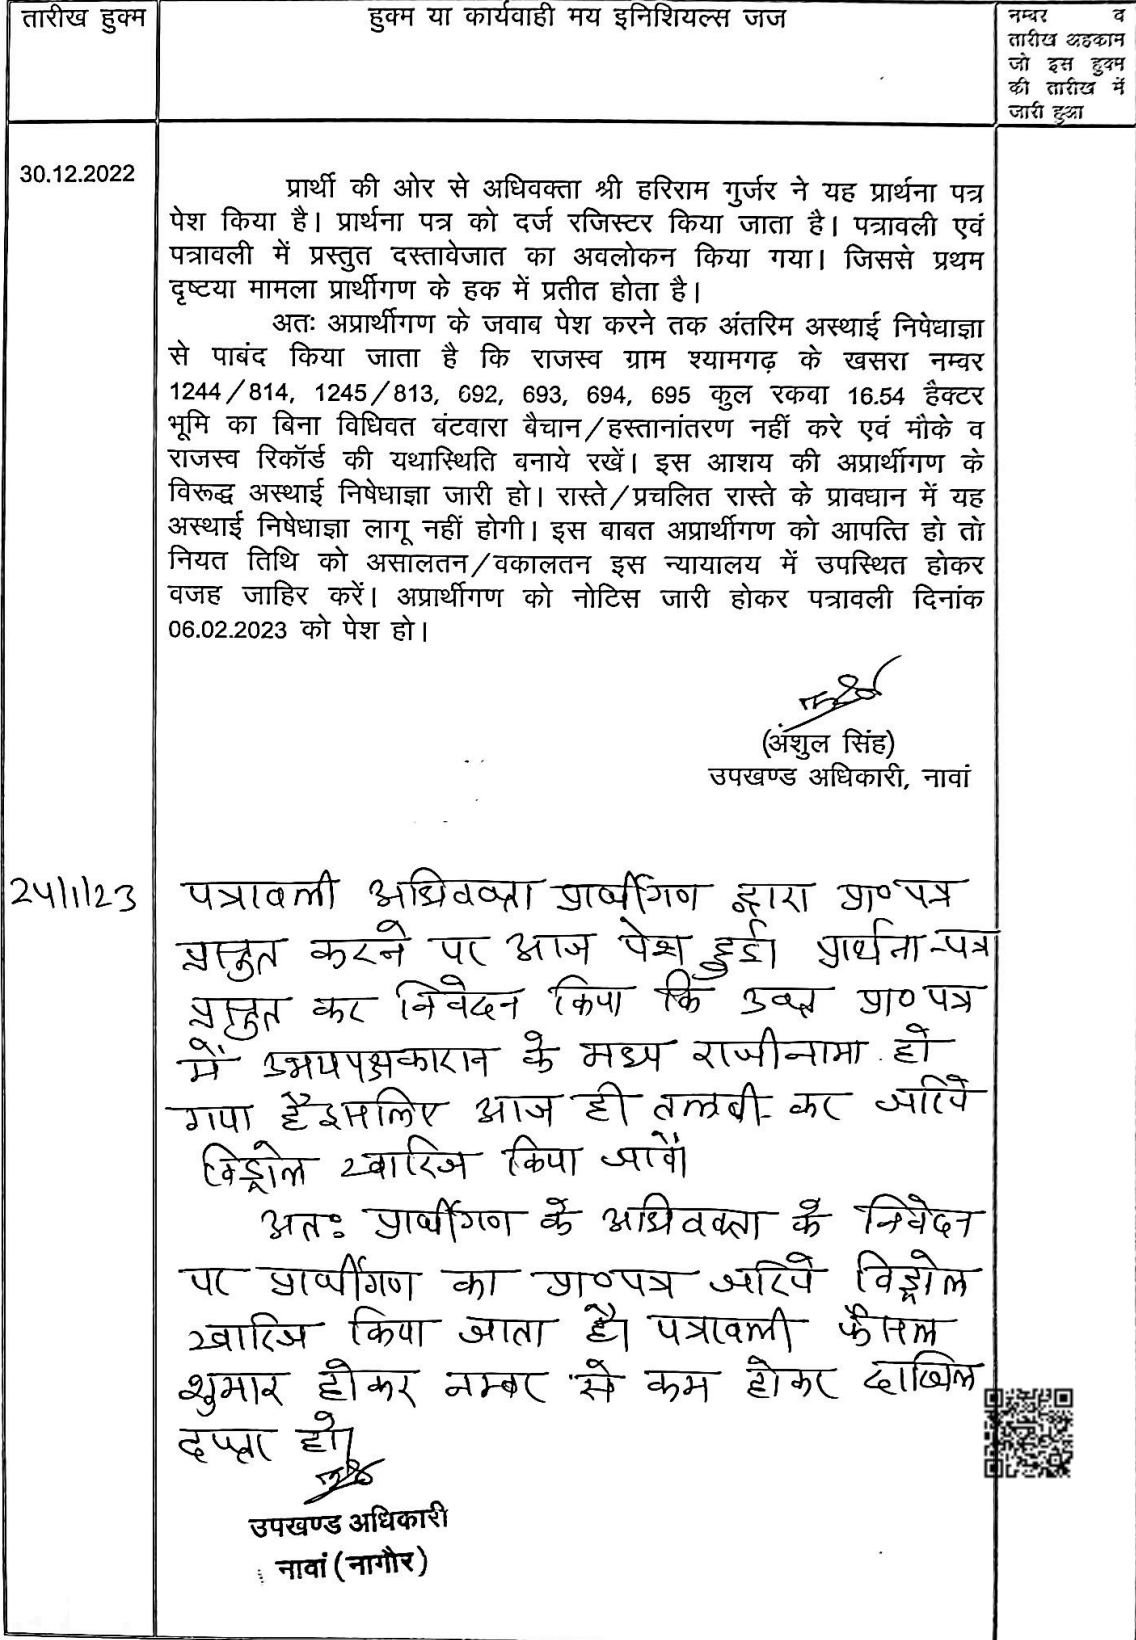 तारीख हुक्म
हुक्म या कार्यवाही मय इनिशियल्स जज
नम्बर व
तारीख अहकाम
जो इस हुक्म
की तारीख में
जारी हुआ
30.12.2022
प्रार्थी की ओर से अधिवक्ता श्री हरिराम गुर्जर ने यह प्रार्थना पत्र
पेश किया है। प्रार्थना पत्र को दर्ज रजिस्टर किया जाता है। पत्रावली एवं
पत्रावली में प्रस्तुत दस्तावेजात का अवलोकन किया गया। जिससे प्रथम
दृष्टया मामला प्रार्थीगण के हक में प्रतीत होता है।
अतः अप्रार्थीगण के जवाब पेश करने तक अंतरिम अस्थाई निषेधाज्ञा
से पाबंद किया जाता है कि राजस्व ग्राम श्यामगढ़ के खसरा नम्वर
1244/814, 1245/813, 692, 693, 694, 695 कुल रकवा 16.54 हैक्टर
भूमि का बिना विधिवत वंटवारा बैचान/हस्तानांतरण नहीं करे एवं मौके व
राजस्व रिकॉर्ड की यथास्थिति वनाये रखें। इस आशय की अप्रार्थीगण के
विरूद्ध अस्थाई निषेधाज्ञा जारी हो। रास्ते/प्रचलित रास्ते के प्रावधान में यह
अस्थाई निषेधाज्ञा लागू नहीं होगी। इस बाबत अप्रार्थीगण को आपत्ति हो तो
नियत तिथि को असालतन/वकालतन इस न्यायालय में उपस्थित होकर
वजह जाहिर करें। अप्रार्थीगण को नोटिस जारी होकर पत्रावली दिनांक
06.02.2023 को पेश हो।
(अंशुल सिंह)
उपखण्ड अधिकारी, नावां
24/1/23
पत्रावली अधिवक्ता प्रार्थीगण द्वारा प्रा० पत्र
प्रस्तुत करने पर आज पेश हुई। प्रार्थना-पत्र
प्रस्तुत कर निवेदन किया कि उक्त प्रा० पत्र
में उभयपक्षकारान के मध्य राजीनामा हो
गया है इसलिए आज ही तलबी कर जरिये
विड्रोल खारिज किया जावें।
अतः प्रार्थीगण के अधिवक्ता के निवेदन
पर प्रार्थीगण का प्रा०पत्र जरिये विड्रोल
खारिज किया जाता है। पत्रावली फैसल
शुमार होकर नम्बर से कम होकर दाखिल
दफ्तर हो।
उपखण्ड अधिकारी
नावां (नागौर)